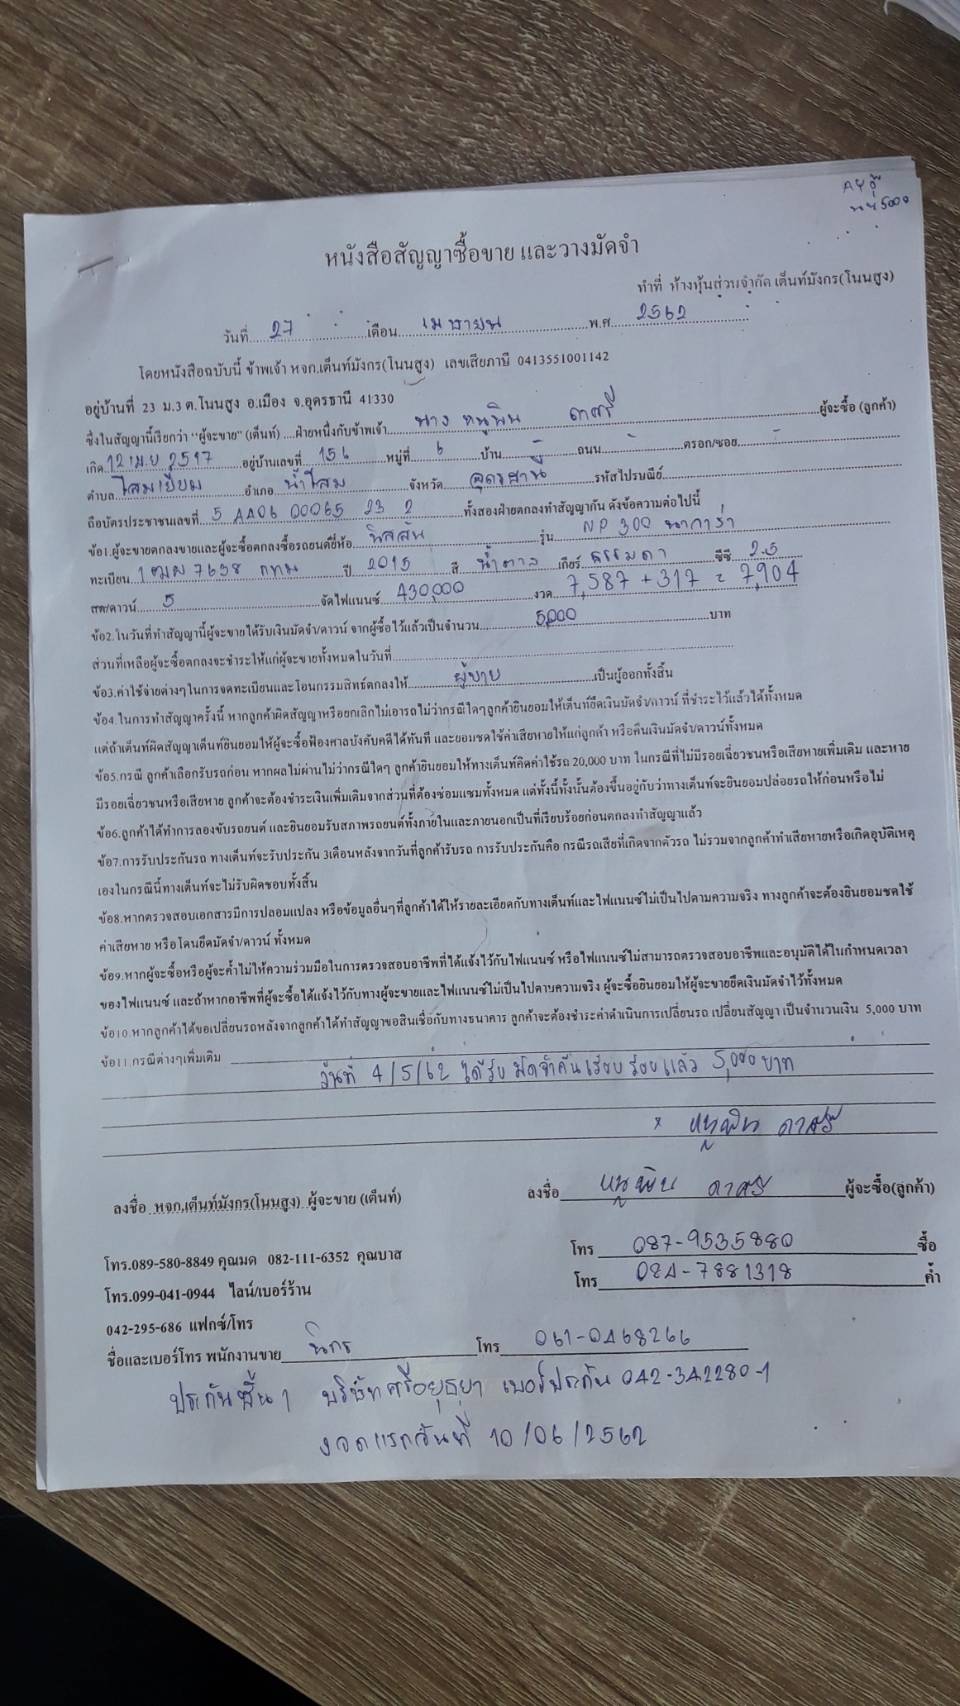 หนังสือสัญญาซื้อขาย และวางมัดจำ
ทำที่ ห้างหุ้นส่วนจำกัด เต็นท์มังกร(โนนสูง)
วันที่ 27 เดือน เมษายน พ.ศ. 2562
โดยหนังสือฉบับนี้ ข้าพเจ้า หจก.เต็นท์มังกร(โนนสูง) เลขเสียภาษี 0413551001142
อยู่บ้านที่ 23 ม.3 ต.โนนสูง อ.เมือง จ.อุดรธานี 41330
ซึ่งในสัญญานี้เรียกว่า "ผู้จะขาย" (เต็นท์) ....ฝ่ายหนึ่งกับข้าพเจ้า นาง หนูพิน ดาศรี ผู้จะซื้อ (ลูกค้า)
เกิด 12 เม.ย 2517 อยู่บ้านเลขที่ 156 หมู่ที่ 6 บ้าน ถนน ตรอก/ซอย
ตำบล โสมเยี่ยม อำเภอ น้ำโสม จังหวัด อุดรธานี รหัสไปรษณีย์
ถือบัตรประชาชนเลขที่ 5 4406 00065 23 2 ทั้งสองฝ่ายตกลงทำสัญญากัน ดังข้อความต่อไปนี้
ข้อ1.ผู้จะขายตกลงขายและผู้จะซื้อตกลงซื้อรถยนต์ยี่ห้อ นิสสัน รุ่น NP 300 นาวาร่า
ทะเบียน 7658 กทม ปี 2015 สี น้ำตาล เกียร์ ธรรมดา ซีซี 2.5
สด/ดาวน์ 5 จัดไฟแนนซ์ 430,000 งวด 7,587 + 317 = 7,904
ข้อ2.ในวันที่ทำสัญญานี้ผู้จะขายได้รับเงินมัดจำ/ดาวน์ จากผู้ซื้อไว้แล้วเป็นจำนวน 5,000 บาท
ส่วนที่เหลือผู้จะซื้อตกลงจะชำระให้แก่ผู้จะขายทั้งหมดในวันที่
ข้อ3.ค่าใช้จ่ายต่างๆในการจดทะเบียนและโอนกรรมสิทธ์ตกลงให้ ผู้ขาย เป็นผู้ออกทั้งสิ้น
ข้อ4.ในการทำสัญญาครั้งนี้ หากลูกค้าผิดสัญญาหรือยกเลิกไม่เอารถไม่ว่ากรณีใดๆลูกค้ายินยอมให้เต็นท์ยึดเงินมัดจำ/ดาวน์ ที่ชำระไว้แล้วได้ทั้งหมด
แต่ถ้าเต็นท์ผิดสัญญาเต็นท์ยินยอมให้ผู้จะซื้อฟ้องศาลบังคับคดีได้ทันที และยอมชดใช้ค่าเสียหายให้แก่ลูกค้า หรือคืนเงินมัดจำ/ดาวน์ทั้งหมด
ข้อ5.กรณี ลูกค้าเลือกรับรถก่อน หากผลไม่ผ่านไม่ว่ากรณีใดๆ ลูกค้ายินยอมให้ทางเต็นท์คิดค่าใช้รถ 20,000 บาท ในกรณีที่ไม่มีรอยเฉี่ยวชนหรือเสียหายเพิ่มเติม และหาย
มีรอยเฉี่ยวชนหรือเสียหาย ลูกค้าจะต้องชำระเงินเพิ่มเติมจากส่วนที่ต้องซ่อมแซมทั้งหมด แต่ทั้งนี้ทั้งนั้นต้องขึ้นอยู่กับว่าทางเต็นท์จะยินยอมปล่อยรถให้ก่อนหรือไม่
ข้อ6.ลูกค้าได้ทำการลองขับรถยนต์ และยินยอมรับสภาพรถยนต์ทั้งภายในและภายนอกเป็นที่เรียบร้อยก่อนตกลงทำสัญญาแล้ว
ข้อ7.การรับประกันรถ ทางเต็นท์จะรับประกัน 3เดือนหลังจากวันที่ลูกค้ารับรถ การรับประกันคือ กรณีรถเสียที่เกิดจากตัวรถ ไม่รวมจากลูกค้าทำเสียหายหรือเกิดอุบัติเหตุ
เองในกรณีนี้ทางเต็นท์จะไม่รับผิดชอบทั้งสิ้น
ข้อ8.หากตรวจสอบเอกสารมีการปลอมแปลง หรือข้อมูลอื่นๆที่ลูกค้าได้ให้รายละเอียดกับทางเต็นท์และไฟแนนซ์ไม่เป็นไปตามความจริง ทางลูกค้าจะต้องยินยอมชดใช้
ค่าเสียหาย หรือโดนยึดมัดจำ/ดาวน์ ทั้งหมด
ข้อ9.หากผู้จะซื้อหรือผู้จะค้ำไม่ให้ความร่วมมือในการตรวจสอบอาชีพที่ได้แจ้งไว้กับไฟแนนซ์ หรือไฟแนนซ์ไม่สามารถตรวจสอบอาชีพและอนุมัติได้ในกำหนดเวลา
ของไฟแนนซ์ และถ้าหากอาชีพที่ผู้จะซื้อได้แจ้งไว้กับทางผู้จะขายและไฟแนนซ์ไม่เป็นไปตามความจริง ผู้จะซื้อยินยอมให้ผู้จะขายยึดเงินมัดจำไว้ทั้งหมด
ข้อ10.หากลูกค้าได้ขอเปลี่ยนรถหลังจากลูกค้าได้ทำสัญญาขอสินเชื่อกับทางธนาคาร ลูกค้าจะต้องชำระค่าดำเนินการเปลี่ยนรถ เปลี่ยนสัญญา เป็นจำนวนเงิน 5,000 บาท
ข้อ11.กรณีต่างๆเพิ่มเติม
วันที่ 4/5/62 ได้รับ มัดจำคืน เรียบ ร้อย แล้ว 5,000 บาท
x หนูพิน ดาศรี
ลงชื่อ หจก.เต็นท์มังกร(โนนสูง) ผู้จะขาย (เต็นท์) ลงชื่อ หนูพิน ดาศรี ผู้จะซื้อ(ลูกค้า)
โทร.089-580-8849 คุณมด 082-111-6352 คุณบาส โทร 087-9535880 ซื้อ
โทร.099-041-0944 ไลน์/เบอร์ร้าน โทร 084-7881318 ค้ำ
042-295-686 แฟกซ์/โทร
ชื่อและเบอร์โทร พนักงานขาย นิกร โทร 061-0468266
ประกันชั้น 1 บริษัทศรีอยุธยา เบอร์ประกัน 042-342280-1
งวดแรกวันที่ 10/06/2562